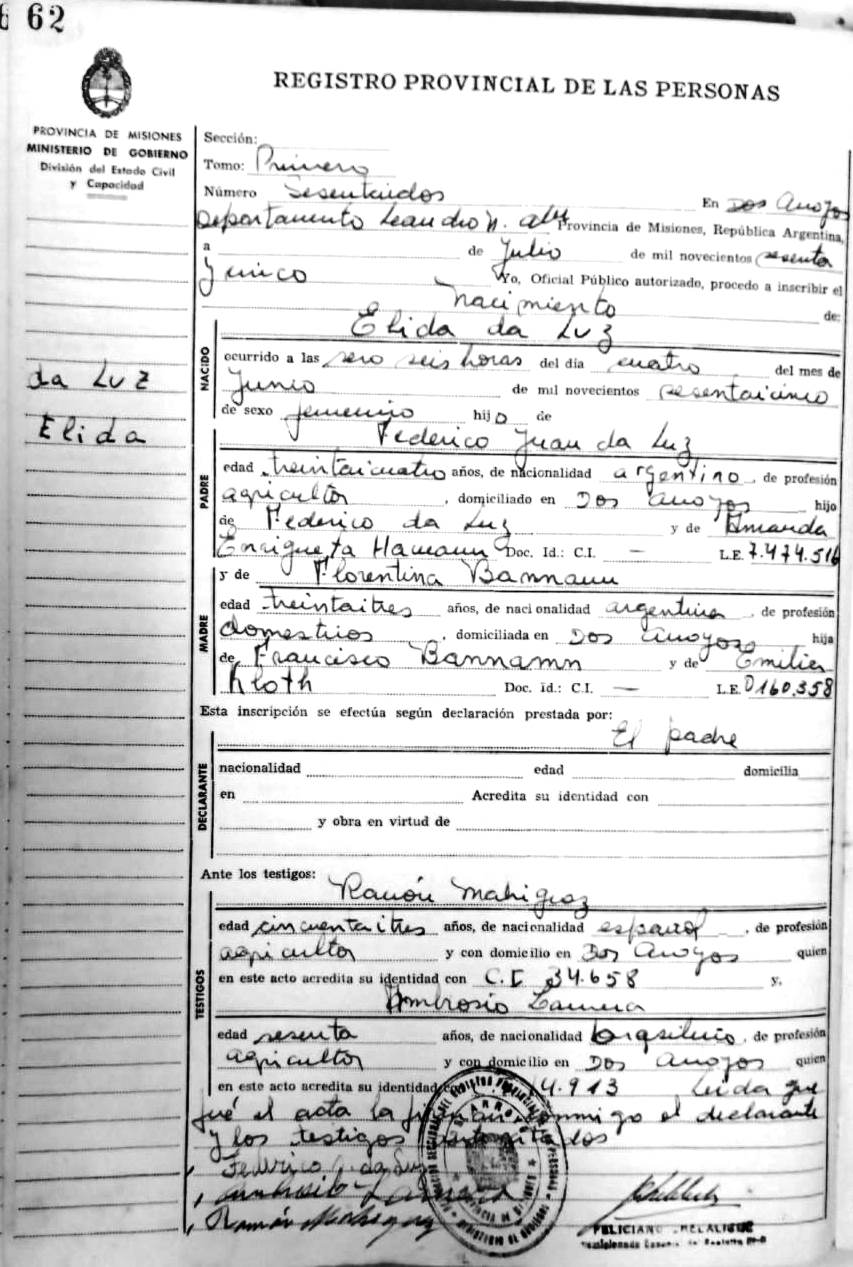 62
REGISTRO PROVINCIAL DE LAS PERSONAS
PROVINCIA DE MISIONES
MINISTERIO DE GOBIERNO
División del Estado Civil
y Capacidad
Sección:
Tomo: Primero
Número Sesentaidos En Dos Arroyos
Departamento Leandro N. Alem Provincia de Misiones, República Argentina,
a de Julio de mil novecientos sesenta
y cinco Yo, Oficial Público autorizado, procedo a inscribir el
nacimiento de:
Elida da Luz
NACIDO
ocurrido a las cero seis horas del día cuatro del mes de
Junio de mil novecientos sesentaicinco
de sexo femenino hijo de
da Luz
Elida
Federico Juan da Luz
PADRE
edad treintaicuatro años, de nacionalidad argentino, de profesión
agricultor, domiciliado en Dos Arroyos hijo
de Federico da Luz y de Amanda
Enriqueta Hamann Doc. Id.: C.I. — L.E. 7.474.516
y de Florentina Bannamn
MADRE
edad treintaitres años, de nacionalidad argentina, de profesión
domestrios, domiciliada en Dos Arroyos hija
de Francisco Bannamn y de Emilia
Kloth Doc. Id.: C.I. — L.E. 0160.358
Esta inscripción se efectúa según declaración prestada por:
El padre
DECLARANTE
nacionalidad edad domicilia
en Acredita su identidad con
y obra en virtud de
Ante los testigos:
Ramón
TESTIGOS
edad cincuentaitres años, de nacionalidad español, de profesión
agricultor y con domicilio en Dos Arroyos quien
en este acto acredita su identidad con C.I 34.658 y,
Ambrosio
edad sesenta años, de nacionalidad brasilero, de profesión
agricultor y con domicilio en Dos Arroyos quien
en este acto acredita su identidad 14.913 Leida que
fué el acta la firman conmigo el declarante
y los testigos
Federico J. da Luz
Ramón
FELICIANO